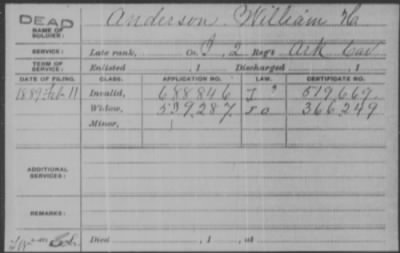 DEAD
NAME OF SOLDIER: Anderson, William H
SERVICE: Late rank, Co. 2 Reg't Ark Cav
TERM OF SERVICE: Enlisted , 1 Discharged , 1
DATE OF FILING. CLASS. APPLICATION NO. LAW. CERTIFICATE NO.
1889 Feb 11 Invalid, 688846 519.669
Widow, 539,287. 366,249
Minor,
ADDITIONAL SERVICES:
REMARKS:
Died , 1 , at